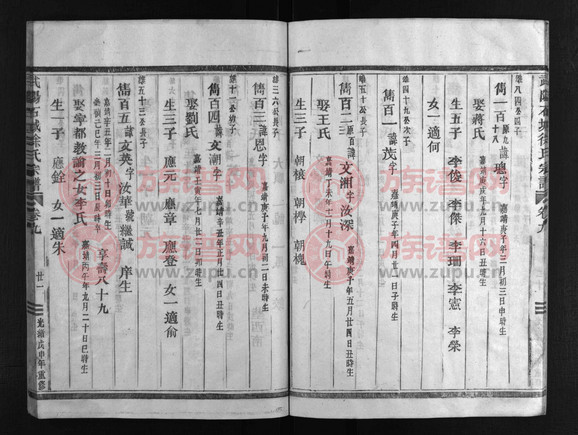 武陽石城徐氏宗譜 卷九
雄八四公長子
儁一百十八 原九 諱璁字 嘉靖 子年三月初三日申時生
娶蔣氏 嘉靖庚戌年九月十六日丑時生
生五子 李俊 李傑 李珊 李憲 李榮
女一適何
雄四十九公次子
儁一百一 諱茂字 嘉靖庚子年四月廿一日子時生
雄五十公長子
儁一百二 原百一 諱文淵字汝深 嘉靖庚子年五月廿四日丑時生
娶王氏 嘉靖丁未年十二月十九日午時生
生三子 朝 朝 朝
雄三六公長子
儁百三 諱恩字 嘉靖庚子年九月初二日未時生
雄十一公幼子
儁百四 諱文潮字 嘉靖辛丑年正月廿四日丑時生
娶劉氏 嘉靖壬寅年七月廿三日辰時生
生三子 應元 應章 應登 女一適俞
雄五十三公長子
儁百五 諱文英字汝華號繼誠 庠生
嘉靖辛丑年二月初十日時生
年二月初三日時卒
享壽八十九
娶寧都教諭之女李氏 嘉靖丙午年九月二十日巳時生
生一子 應銓 女一適朱
武陽石城徐氏宗譜 卷九 廿一 光緒戊申年重修
族谱网
www.zupu.cn
族谱网
www.zupu.cn